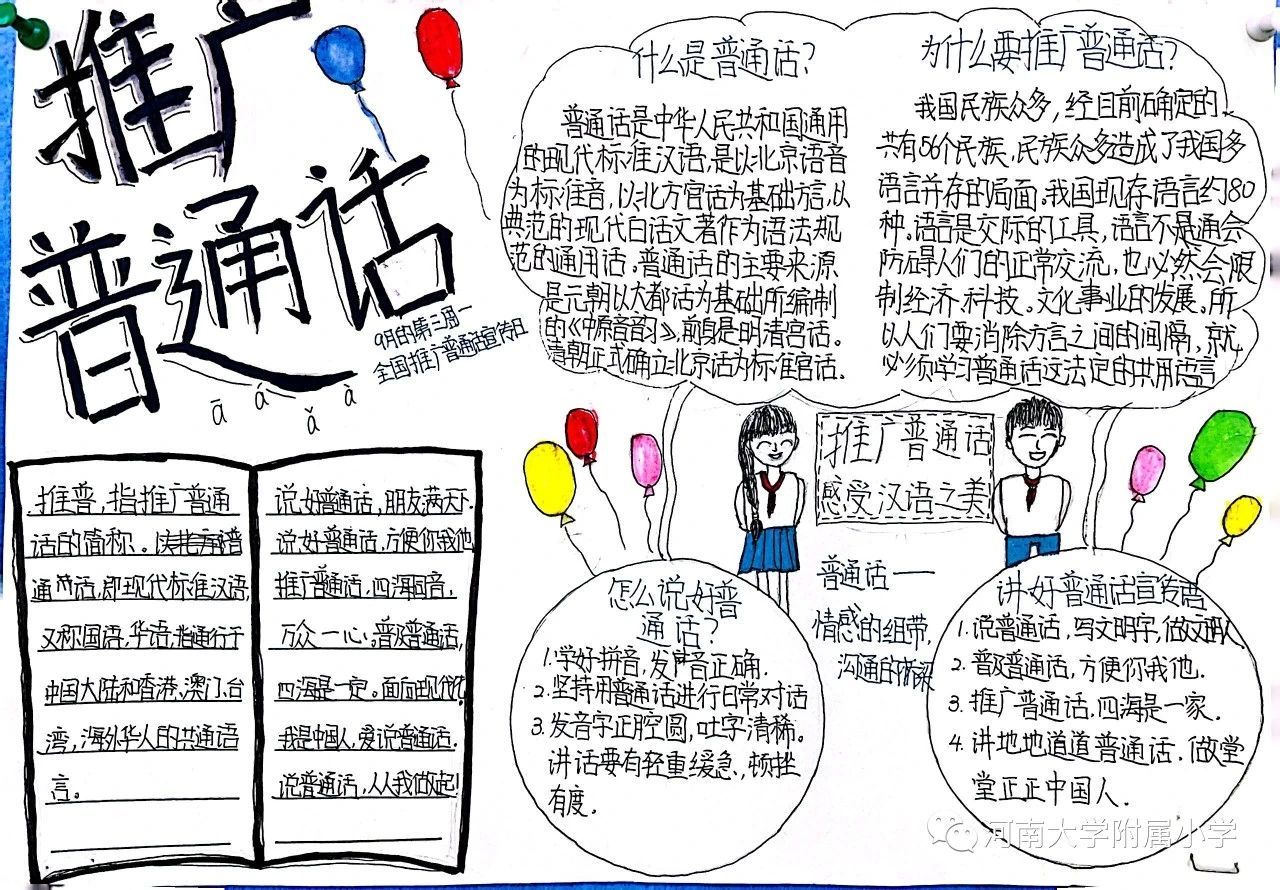 推广
普通话
9月的第三周一
全国推广普通话宣传日
ā á ǎ à
什么是普通话?
普通话是中华人民共和国通用
的现代标准汉语,是以北京语音
为标准音,以北方官话为基础方言,以
典范的现代白话文著作为语法规
范的通用话。普通话的主要来源
是元朝以大都话为基础所编制
的《中原音韵》,前身是明清官话。
清朝正式确立北京话为标准官话.
为什么要推广普通话?
我国民族众多,经目前确定的
共有56个民族,民族众多造成了我国多
语言并存的局面。我国现存语言约80
种。语言是交际的工具,语言不通会
防碍人们的正常交流,也必然会限
制经济、科技、文化事业的发展。所
以人们要消除方言之间的间隔,就
必须学习普通话这法定的共用语言
推普,指推广普通
话的简称。
通话,即现代标准汉语,
又称国语、华语,指通行于
中国大陆和香港、澳门、台
湾,海外华人的共通语
言。
说好普通话,朋友满天下.
说好普通话,方便你我他
推广普通话,四海同音,
万众一心。普及普通话,
四海是一定。面向现代化
我是中国人,爱说普通话.
说普通话,从我做起!
推广普通话
感受汉语之美
普通话一
情感的纽带,
沟通的桥梁
怎么说好普
通话?
1.学好拼音,发声音正确.
2.坚持用普通话进行日常对话
3.发音字正腔圆,吐字清稀。
讲话要有轻重缓急,顿挫
有度.
讲好普通话宣传语
1.说普通话,写文明字,做文明人
2.普及普通话,方便你我他.
3.推广普通话,四海是一家.
4.讲地地道道普通话.做堂
堂正正中国人.
河南大学附属小学